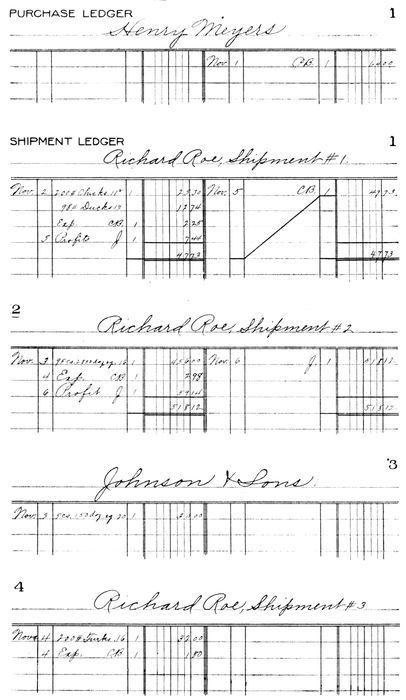 PURCHASE LEDGER 1
Henry Meyers
Nov. 1 CB 1 6400
SHIPMENT LEDGER 1
Richard Roe, Shipment #1.
Nov. 2 200# Chicks 11¢ 1 Nov. 5 CB 1 4773
98# Ducks 13 1 1274
Exp. CB 1 225
5 Profits J 1 744
4773 4773
2
Richard Roe, Shipment #2
Nov. 3 1 45600 Nov. 6 J 1 51812
4 Exp. CB 1 298
6 Profit J 1 5914
51812 51812
3
Johnson & Sons.
Nov. 3 1
4
Richard Roe, Shipment #3
Nov. 4 200# Turks. 16 1 3200
4 Exp. CB 1 150